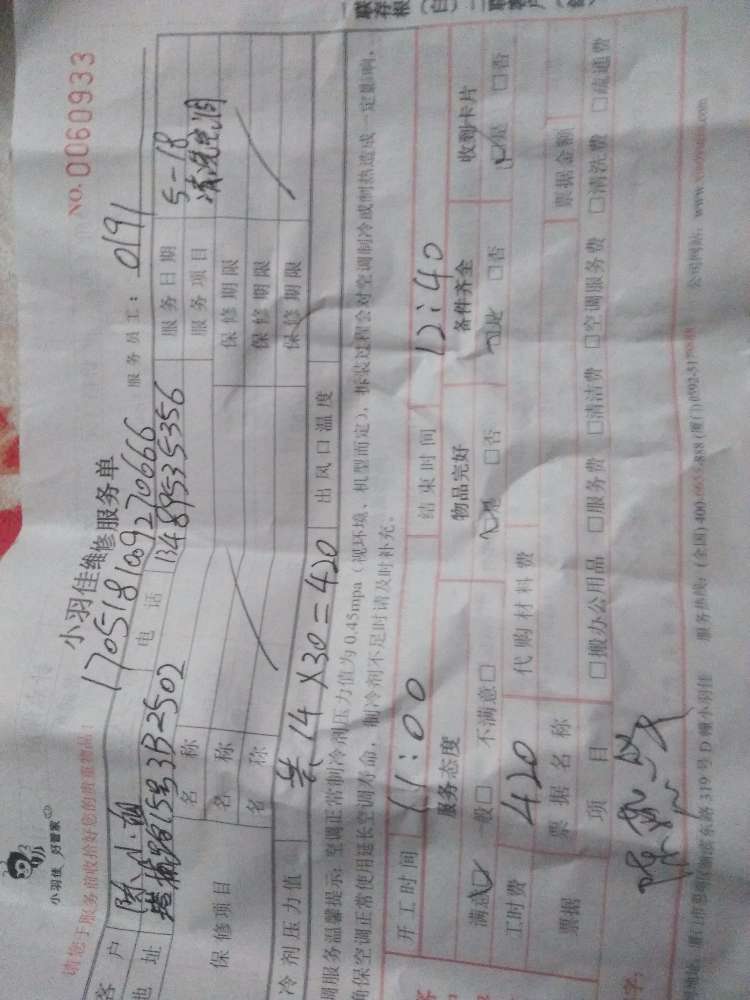 小羽佳 好管家
小羽佳维修服务单
NO. 0060933
请您于服务前收拾好您的贵重物品!
1705181009270666
服务员工: 0191
客户 陈小姐
电话 13489535356
服务日期 5-18
地址 15号3B2502
服务项目 清洗空调
保修项目
名称 保修期限
名称 保修期限
名称 保修期限
冷剂压力值 共14×30=420 出风口温度
调服务温馨提示: 空调正常制冷剂压力值为0.45mpa(视环境、机型而定), 拆装过程会对空调制冷或制热造成一定影响,
确保空调正常使用延长空调寿命, 制冷剂不足时请及时补充。
开工时间 11:00 结束时间 12:40
服务态度 物品完好 备件齐全 收到卡片
满意☑ 一般□ 不满意□ ☑是 □否 ☑是 □否 ☑是 □否
工时费 420 代购材料费
票据 票据名称 票据金额
项目 □搬办公用品 □服务费 □清洁费 □空调服务费 □清洗费 □疏通费
319号D幢小羽佳 服务热线: (全国) 400- -888 (厦门) 0592- 公司网站: www.